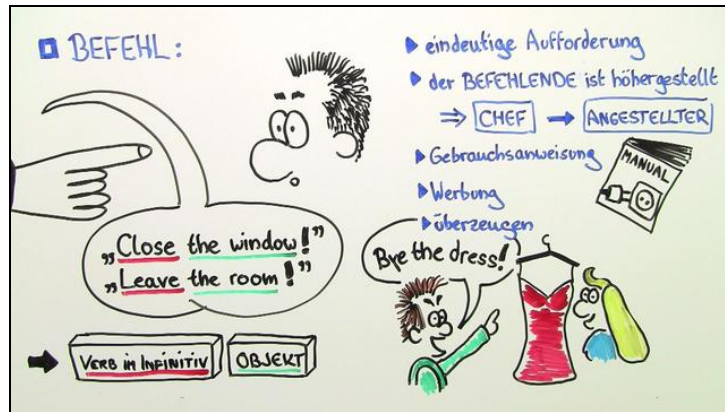 BEFEHL:
„Close the window!”
„Leave the room!”
VERB IM INFINITIV
OBJEKT
▸ eindeutige Aufforderung
▸ der BEFEHLENDE ist höhergestellt
⇒ CHEF → ANGESTELLTER
▸ Gebrauchsanweisung
MANUAL
▸ Werbung
▸ überzeugen
Bye the dress!